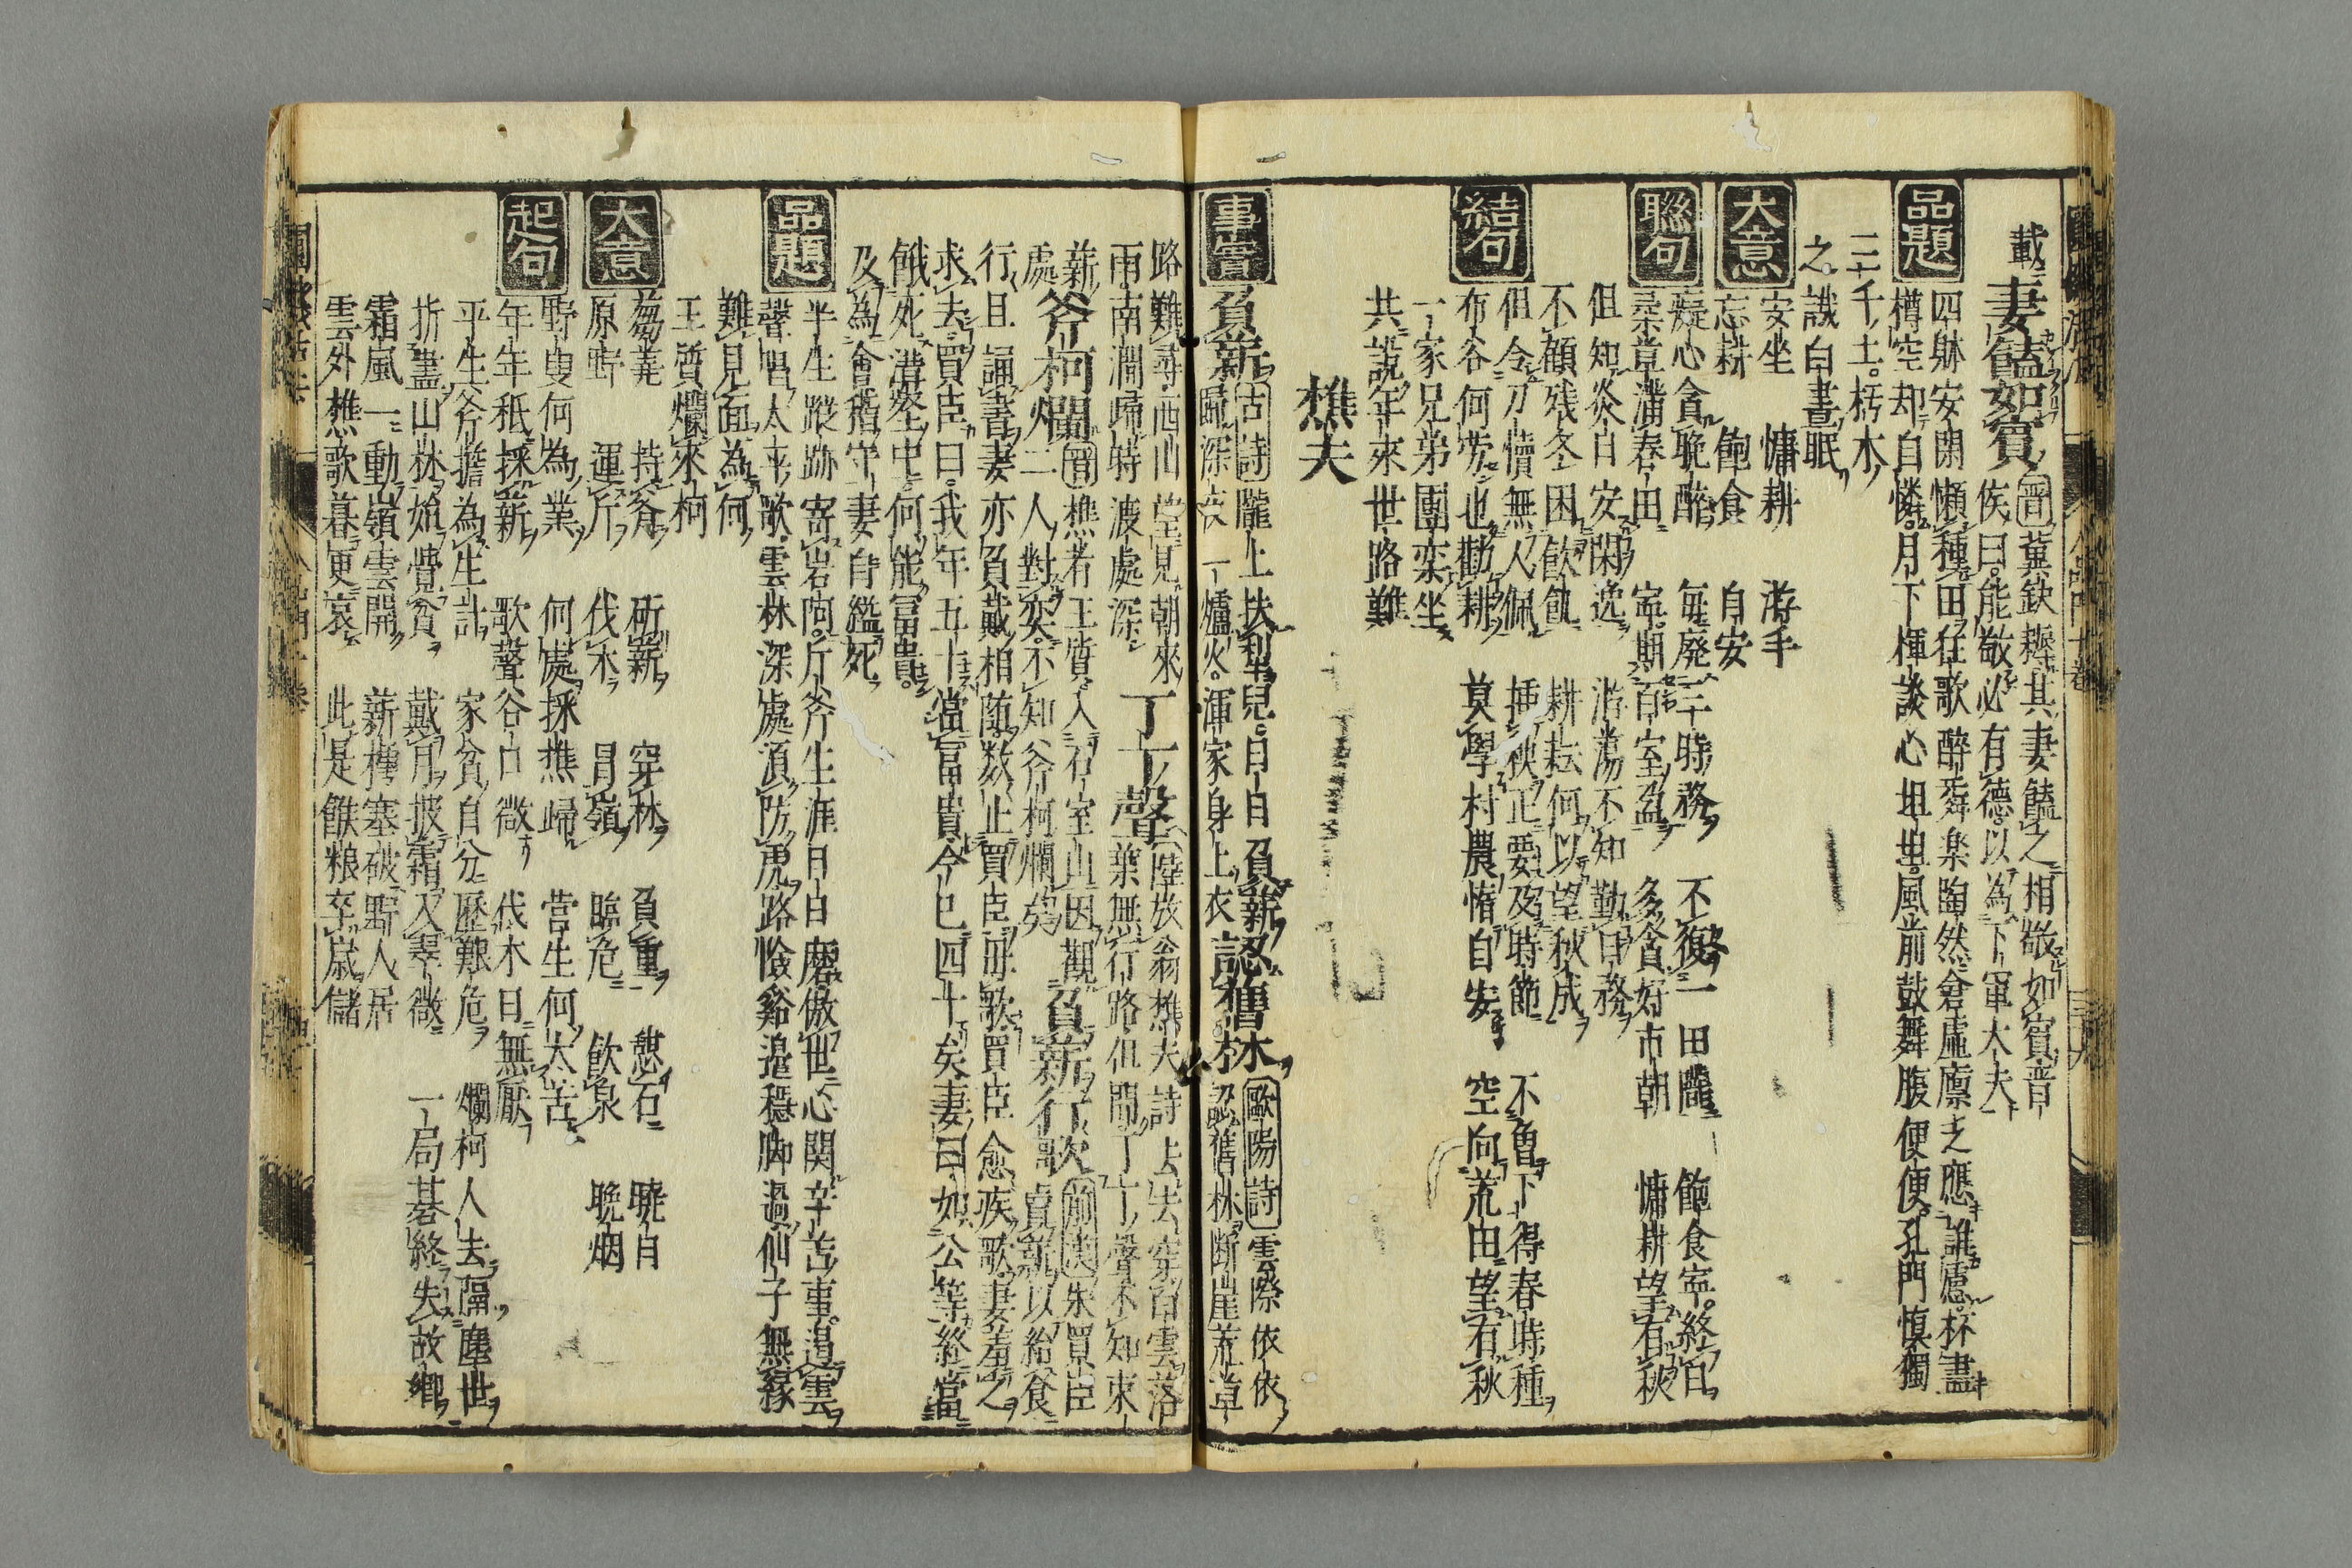 載妻饁如賓 晋冀欽耨其妻饁之相敬如賓晋
侯曰能敬必有德以為下軍大夫
品題 四躰安閑懶種田狂歌醉舞楽陶然倉虛廩乏應誰慮杯盡
樽空却自憐月下揮談心坦坦風前鼓舞腹便便孔門慎獨
三千士朽木
之譏白晝眠
大意 安坐 慵耕 游手
忘耕 飽食 自安
聯句 癡心貪晩醉 每廢三時務 不復一田隴 飽食寧終日
桑章滿春田 寧期百室盈 多貪好市朝 慵耕望有秋
但知炎日安閑逸 游蕩不知勤日務
不顧残冬困飲飢 耕耘何以望秋成
但令刀犢無人佩 挿秧正要及時節 不魯下得春時種
結句 布谷何労也勸耕 莫學村農惰自安 空向荒田望有秋
一家兄弟團栾坐
共說年來世路難
樵夫
事實 負薪 古詩隴上扶犁兒 日日負薪 認舊林 歐陽詩雲際依依
歸深夜一爐火渾家身上衣 認舊林断崖荒草
路難尋西山望見朝來 丁丁聲 陸放翁樵夫詩上去穿白雲落
雨南澗歸時渡處深 葉無行路但聞丁丁聲不知東
薪處 斧柯爛 晋樵者王質入石室山因觀 負薪行歌 前漢朱買臣
二人對奕不知斧柯爛矣 賣薪以給食
行且誦書妻亦負戴相隨数止買臣毋歌買臣愈疾歌妻羞之
求去買臣曰我年五十當冨貴今已四十矣妻曰如公等終當
餓死溝壑中何能冨貴
及為會稽守妻自縊死
品題 半生蹤跡寄岩阿斤斧生涯日日磨傲世心関辛苦事遏雲
聲唱太平歌雲林深處須防虎路憸谿邉穩脚過仙子無緣
難見面為何
王質爛來柯
大意 芻蕘 持斧 斫薪 穿林 負重 憩石 曉日
原野 運斤 伐木 冒嶺 臨危 飲泉 晩烟
起句 野叟何為業 何處採樵歸 営生何太苦
年年秖採薪 歌聲谷口微 伐木日無厭
平生斧擔為生計 家貧自分歴艱危 爛柯人去隔塵世
折盡山林始覺貧 戴月披霜入翠微 一局碁終失故鄉
霜風一動嶺雲開 薪積塞破野人居
雲外樵歌暮更哀 此是餱粮卒歳儲